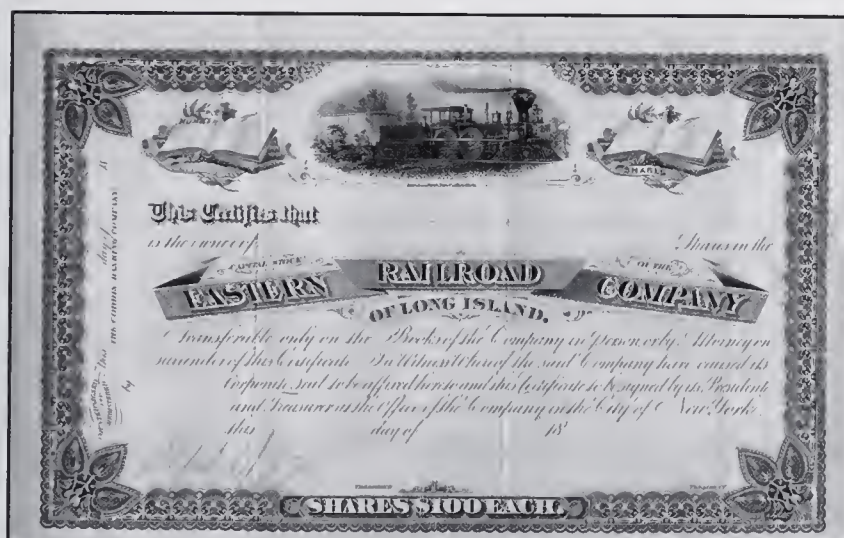 NUMBER
SHARES
This Certifies that
is the owner of Shares in the
CAPITAL STOCK OF THE
EASTERN RAILROAD COMPANY
OF LONG ISLAND.
Transferable only on the Books of the Company in person or by Attorney on
surrender of this Certificate In Witness Whereof the said Company have caused its
Corporate Seal to be affixed hereto and this Certificate to be signed by its President
and Treasurer at the Office of the Company in the City of New York
this day of 18
TREASURER
PRESIDENT
SHARES $100 EACH.
COUNTERSIGNED AND REGISTERED this day of 18
by THE CORBIN BANKING COMPANY